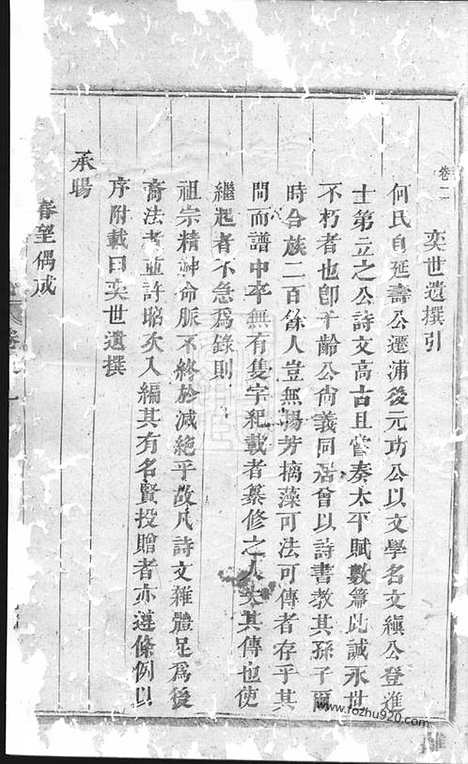 卷二
奕世遺撰引
何氏自延壽公遷浦後元功公以文學名文縝公登進
士第立之公詩文高古且嘗奏太平賦數篇此誠永世
不朽者也卽千齡公尚義同居曾以詩書教其孫子爾
時合族二百餘人豈無揚芳摛藻可法可傳者存乎其
間而譜中卒無有隻字紀載者纂修之人失其傳也使
繼起者不急爲錄則
祖宗精神命脈不終於滅絕乎故凡詩文雜體足爲後
裔法者並許昭次入編其有名賢投贈者亦遵條例以
序附載曰奕世遺撰
承暘
春望偶成
www.fozhu920.com